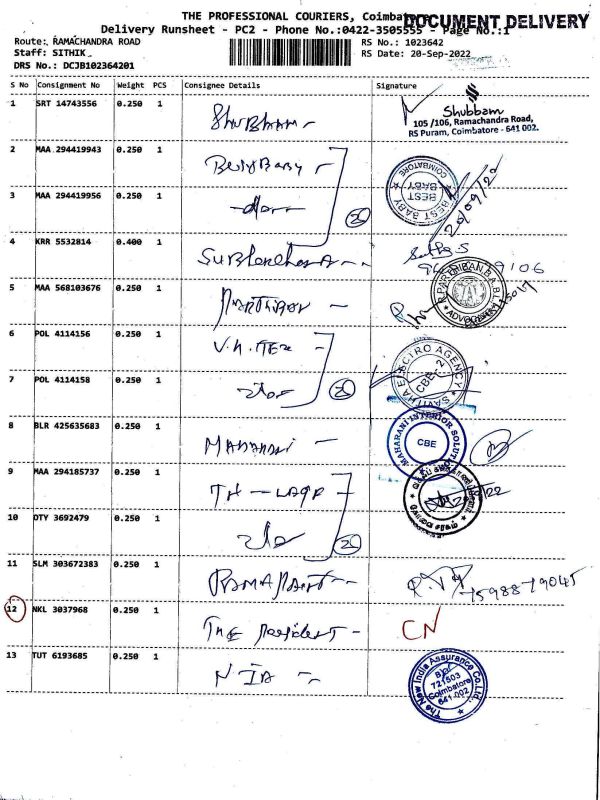 THE PROFESSIONAL COURIERS, Coimbatore
DOCUMENT DELIVERY
Delivery Runsheet - PC2 - Phone No.:0422-3505555 - Page No.:1
Route: RAMACHANDRA ROAD
RS No.: 1023642
Staff: SITHIK
RS Date: 20-Sep-2022
DRS No.: DCJB102364201
S No Consignment No Weight PCS Consignee Details Signature
1 SRT 14743556 0.250 1 Shubham
Shubbam
105 /106, Ramachandra Road,
RS Puram, Coimbatore - 641 002.
2 MAA 294419943 0.250 1 Best Baby
BEST BABY
COIMBATORE
20/09/22
3 MAA 294419956 0.250 1
2
4 KRR 5532814 0.400 1
9106
5 MAA 568103676 0.250 1
ADVOCATE
6 POL 4114156 0.250 1 V.A.
7 POL 4114158 0.250 1
2
ELECTRO AGENCY
CBE-2
8 BLR 425635683 0.250 1 Maharani
MAHARANI INTERIOR SOLUTION
CBE
9 MAA 294185737 0.250 1
10 OTY 3692479 0.250 1
2
11 SLM 303672383 0.250 1
7598879045
12 NKL 3037968 0.250 1 The President
CN
13 TUT 6193685 0.250 1 NIA
The New India Assurance Co.Ltd.
B/o
721503
Coimbatore
641-002